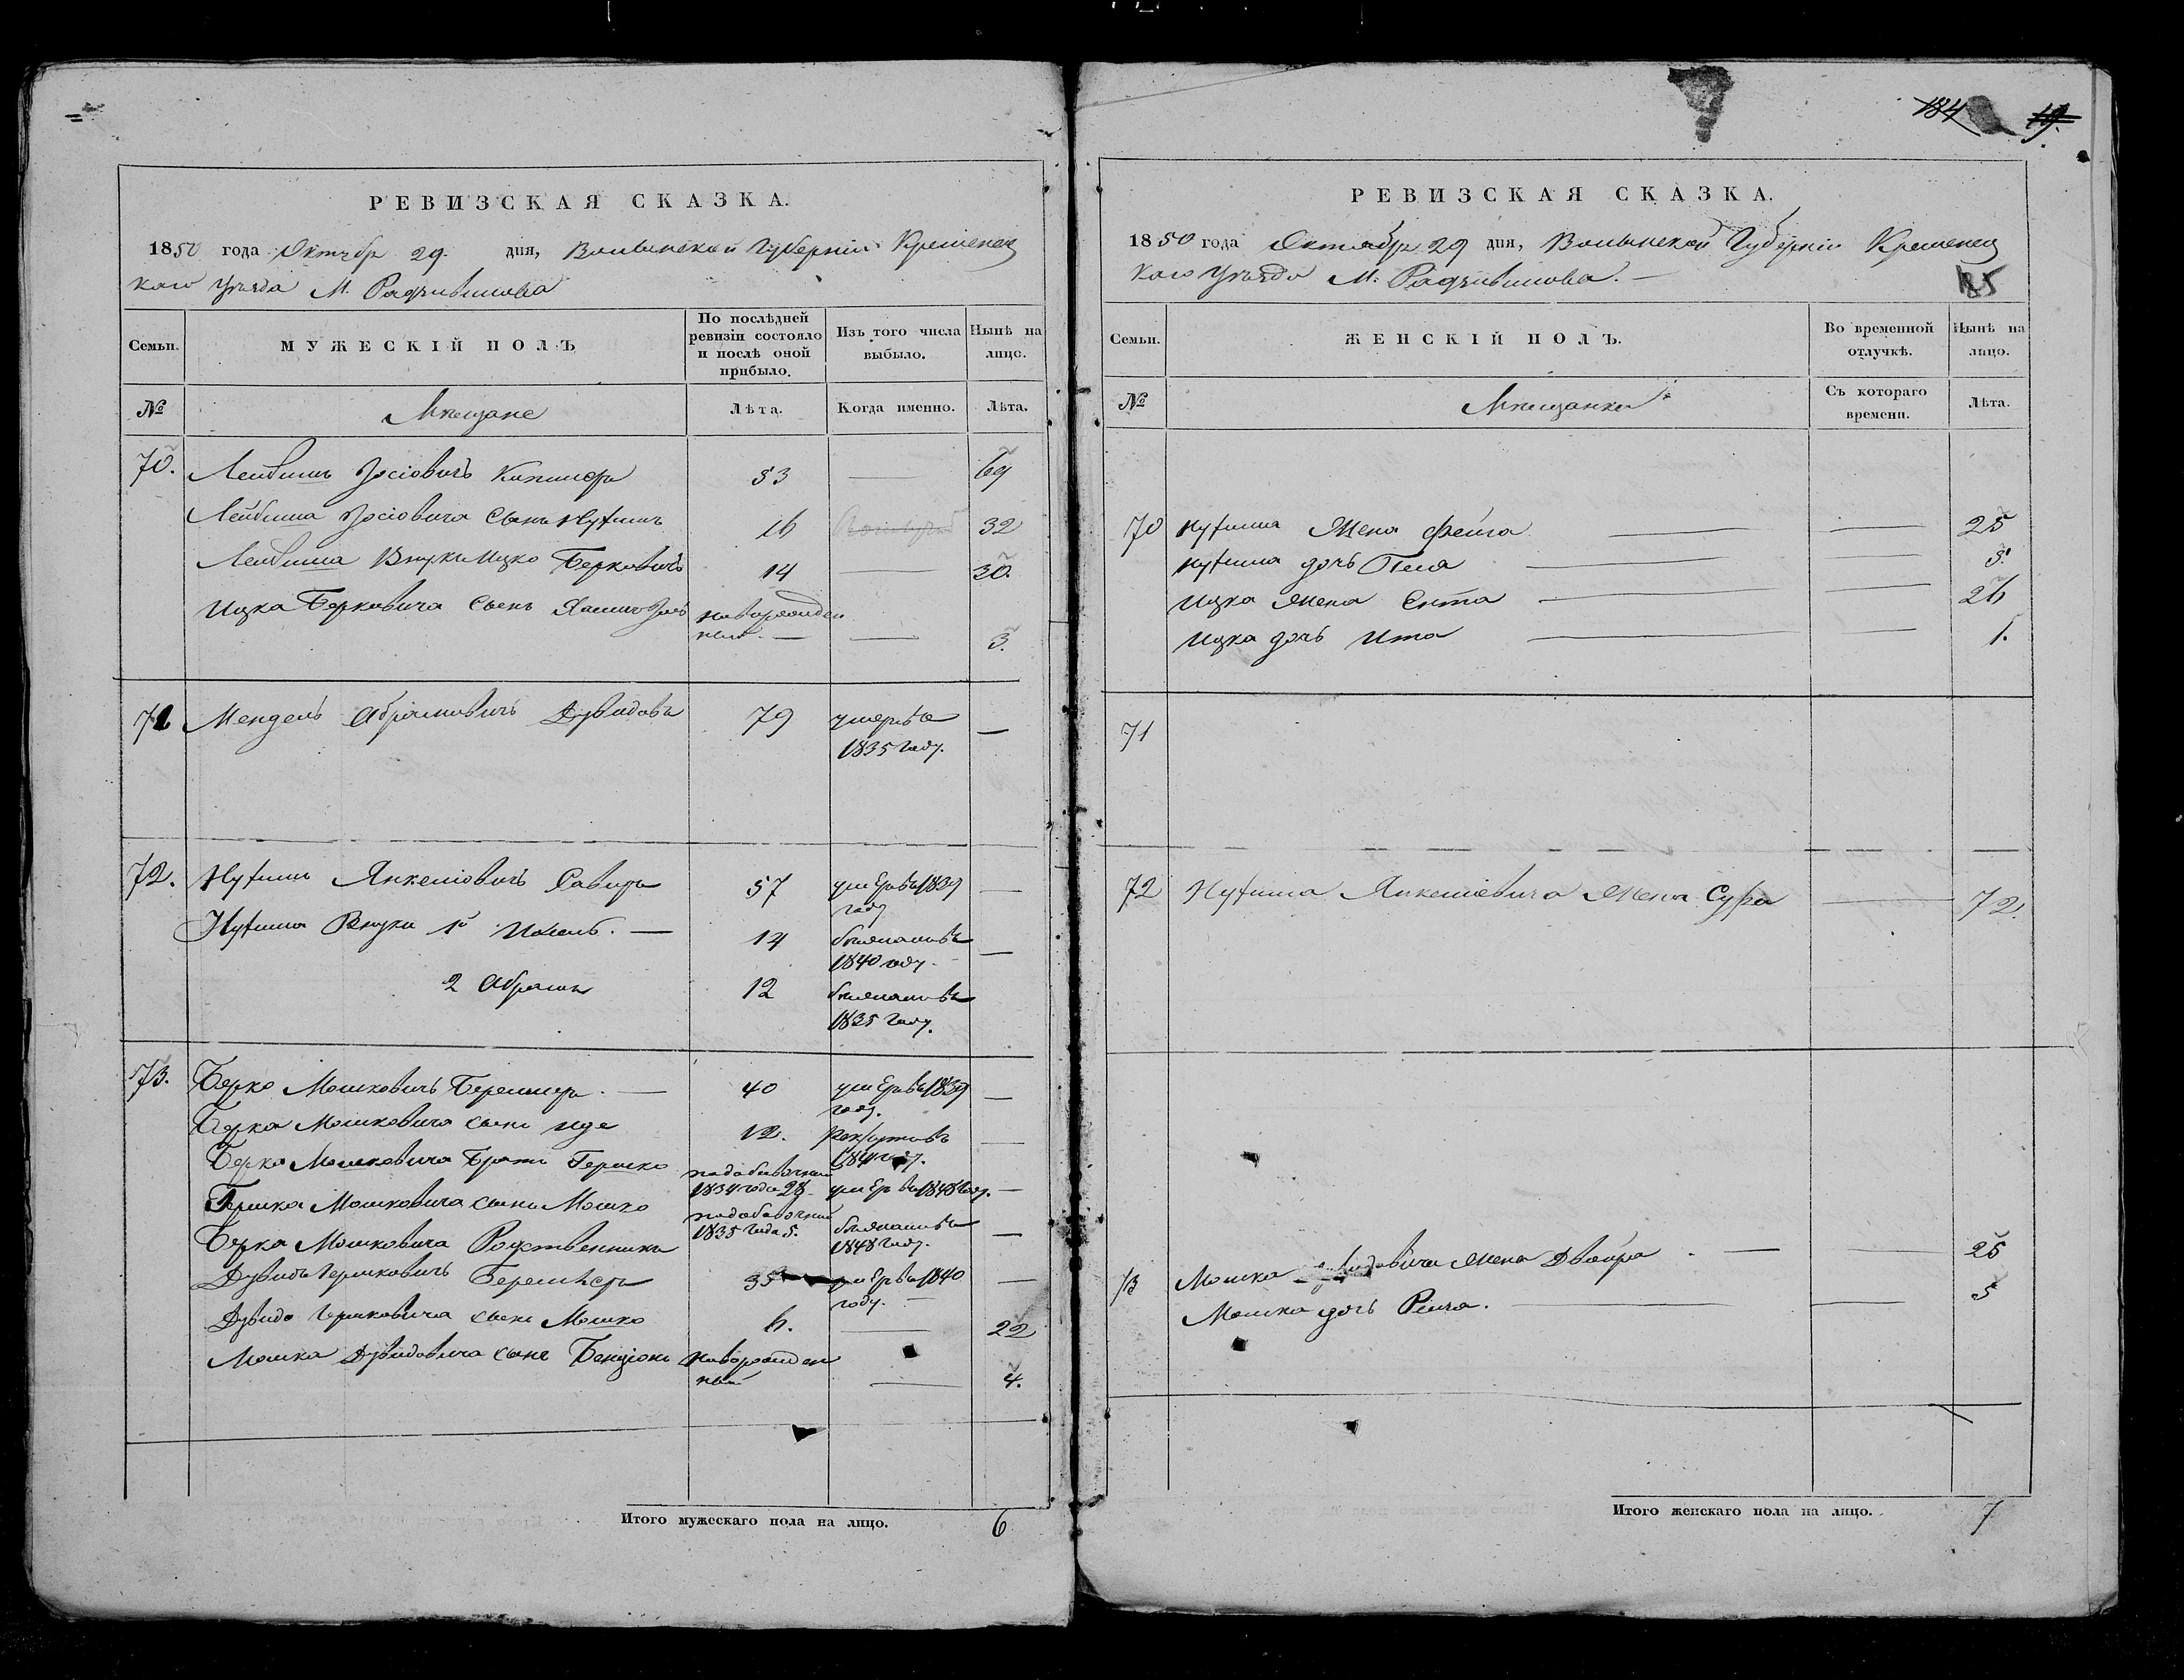 РЕВИЗСКАЯ СКАЗКА.
1850 года Октябр 29. дня, Волынской Губерніи Кременец
каго Уѣзда М. Радзивилова
Семьи. МУЖЕСКІЙ ПОЛЪ По послѣдней ревизіи состояло и послѣ оной прибыло. Изъ того числа выбыло. Нынѣ на лицо.
№ Мѣщане Лѣта. Когда именно. Лѣта.
70. Лейбишъ Iосіовичъ 53 — 69
Лейбиша Iосіовича сынъ Нухимъ 16 32
Лейбиша Внукъ Ицко Берковичъ 14 — 30.
Ицка Берковича сынъ новорожден
ный — — 3.
71 Мендель Абрамовичъ Дувидовъ 79 умеръ въ —
1835 году.
72. Нухимъ Янкеліовичъ 57 умеръ въ 1839 —
году
Нухима Внуки 1й — 14 бежалъ въ —
1840 году.
2 Абрамъ 12 бежалъ въ
1835 году.
73. Берко Мошковичъ — 40 умеръ въ 1839 —
году.
Берка Мошковича сынъ Иде 12. Рекрутовъ —
1841 году.
Берка Мошковича Братъ Гершко подобавочный
1834 года 28 умеръ въ 1848 году. —
Гершка Мошковича сынъ Мошко подобавочный
1835 года 5. бежалъ въ —
1848 году.
Берка Мошковича Родственникъ
Дувидъ Гершковичъ 35 умеръ въ 1840 —
году.
Дувида Гершковича сынъ Мошко 6. — 22
Мошка Дувидовича сынъ Бенціонъ новорожден
ный — 4.
Итого мужескаго пола на лицо. 6
184 19.
РЕВИЗСКАЯ СКАЗКА.
1850 года Октября 29 дня, Волынской Губерніи Кременец
каго Уѣзда М. Радзивилова. —
185
Семьи. ЖЕНСКІЙ ПОЛЪ. Во временной отлучкѣ. Нынѣ на лицо.
№ Мѣщанки Съ котораго времени. Лѣта.
70 Нухима Жена Фейга — — 25
Нухима дочь — — 5.
Ицка Жена Ента — — 26
Ицка дочь Ита — — 1.
71
72 Нухима Янкеліовича Жена Сура — 72.
73 Мошка Дувидовича Жена Двойра — — 25
Мошка дочь — — 5
Итого женскаго пола на лицо. 7